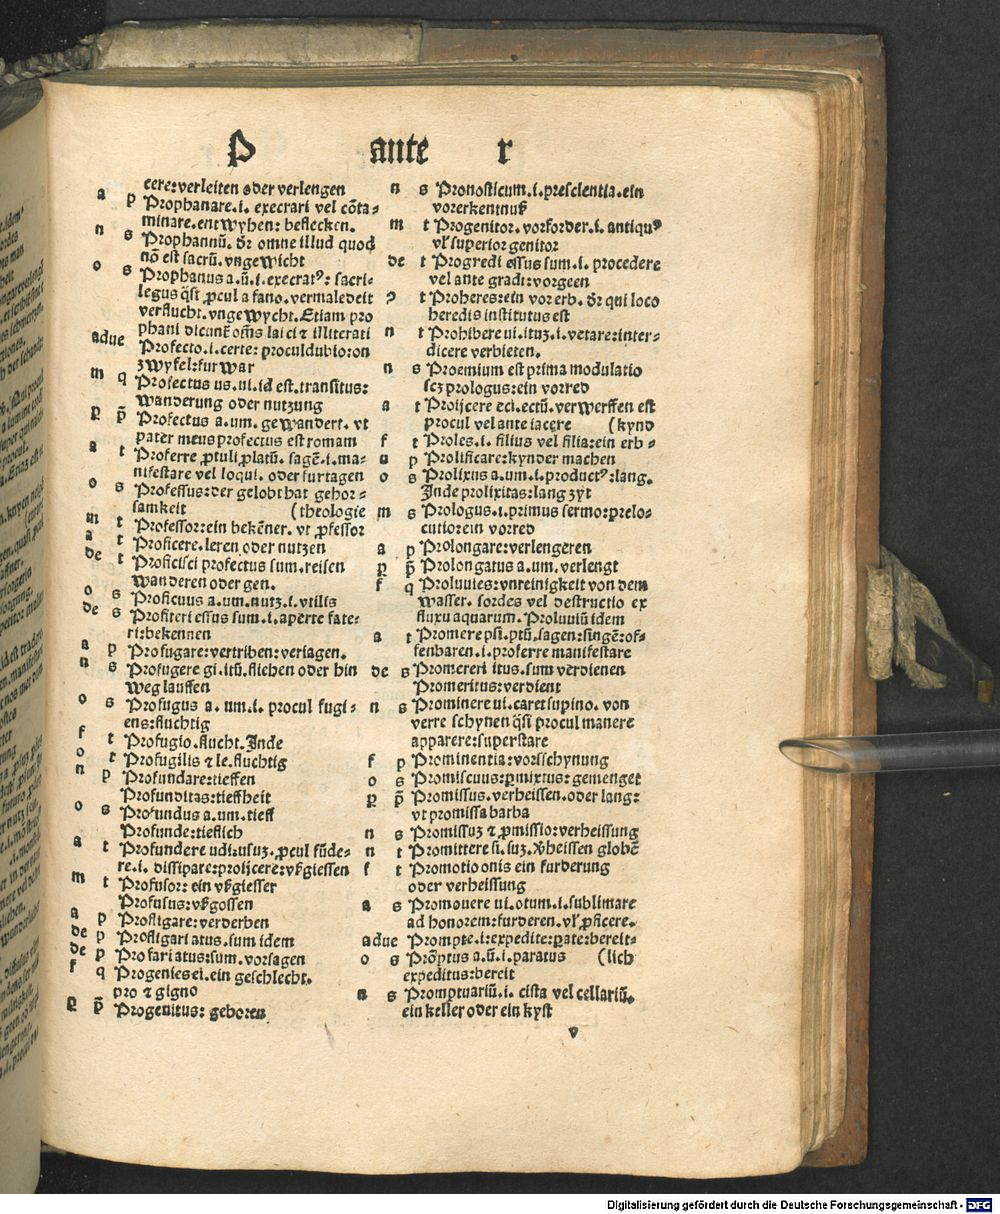 P ante r
cere:verleiten oder verlengen
a p Prophanare.i. execrari vel cõta⸗
minare.entwyhen: beflecken.
n s Prophannũ. dr omne illud quod
nõ est sacrũ.vngewicht
o s Prophanus a.ũ.i.execratꝰ: sacri⸗
legus q̃si ꝓcul a fano.vermaledeit
verflucht.vngewycht.Etiam pro
phani dicunt̃ om̃s laici ⁊ illiterati
adue Profecto.i.certe: proculdubio:on
zwyfel:furwar
m q Profectus us.ui.id est.transitus:
wanderung oder nutzung
p̲ p̃ Profectus a.um. gewandert. vt
pater meus profectus est romam
a t Proferre ꝓtuli ꝓlatũ. sagẽ.i.ma⸗
nifestare vel loqui. oder furtagen
o s Professus:der gelobt hat gehor⸗
samkeit (theologie
m t Professor:ein bekẽner. vt ꝓfessor
a t Proficere.leren oder nutzen
de t Proficisci profectus sum.reisen
wanderen oder gen.
o s Proficuus a.um.nutz.i.vtilis
de s Profiteri essus sum.i.aperte fate⸗
ri:bekennen
a p Profugare:vertriben:veriagen.
n s Profugere gi.itũ.fliehen oder hin
weg lauffen
o s Profugus a. um.i. procul fugi⸗
ens:fluchtig
f t Profugio.flucht.Inde
o t Profugilis ⁊ le.fluchtig
n p Profundare:tieffen
Profunditas:tieffheit
o s Profundus a.um.tieff
Profunde:tieflich
a t Profundere udi.usuz.ꝓcul fũde⸗
re.i. dissipare:proijcere:vßgiessen
m t Profusor: ein vßgiesser
Profusus:vßgossen
a p Profligare:verderben
de p Profligari atus.sum idem
de p Profari atus:sum.vorsagen
f q Progenies ei.ein geschlecht.
pro ⁊ gigno
p̲ p̃ Progenitus: geboren
n s Pronosticum.i.prescientia.ein
vorerkentnuß
m t Progenitor. vorforder.i. antiquꝰ
vl̃ superior genitor
de t Progredi essus sum.i. procedere
vel ante gradi:vorgeen
? t Proheres:ein vor erb. dr qui loco
heredis institutus est
n t Prohibere ui.ituz.i.vetare:inter⸗
dicere verbieten.
n s Proemium est prima modulatio
scz prologus:ein vorred
a t Proijcere eci.ectũ.verwerffen est
procul vel ante iacere (kynd
f t Proles.i. filius vel filia:ein erb⸗
a p Prolificare:kynder machen
o s Prolixus a.um.i.productꝰ:lang.
Inde prolixitas:lang zyt
m s Prologus.i.primus sermo:prelo⸗
cutio:ein vorred
a p Prolongare:verlengeren
p̲ p̃ Prolongatus a.um.verlengt
f q Proluuies:vnreinigkeit von dem
wasser. sordes vel destructio ex
fluxu aquarum. Proluuiũ idem
a t Promere psi.ptũ.sagen:singẽ:of⸗
fenbaren.i.proferre manifestare
de s Promereri itus.sum verdienen
Promeritus:verdient
n s Prominere ui.caret supino. von
verre schynen q̃si procul manere
apparere:superstare
f p Prominentia:vorschynung
o s Promiscuus:ꝑmixtus:gemenget
p̲ p̃ Promissus.verheissen.oder lang:
vt promissa barba
n s Promissuz ⁊ ꝓmissio:verheissung
n t Promittere si.suz.v̾heissen globẽ
f t Promotio onis ein furderung
oder verheissung
a s Promouere ui.otum.i.sublimare
ad honorem:furderen.vl̃ ꝓficere.
adue Prompte.i:expedite:ꝑate:bereit⸗
o s Prõptus a.ũ.i.paratus (lich
expeditus:bereit
n s Promptuariũ.i. cista vel cellariũ.
ein keller oder ein kyst
v
Digitalisierung gefördert durch die Deutsche Forschungsgemeinschaft - DFG